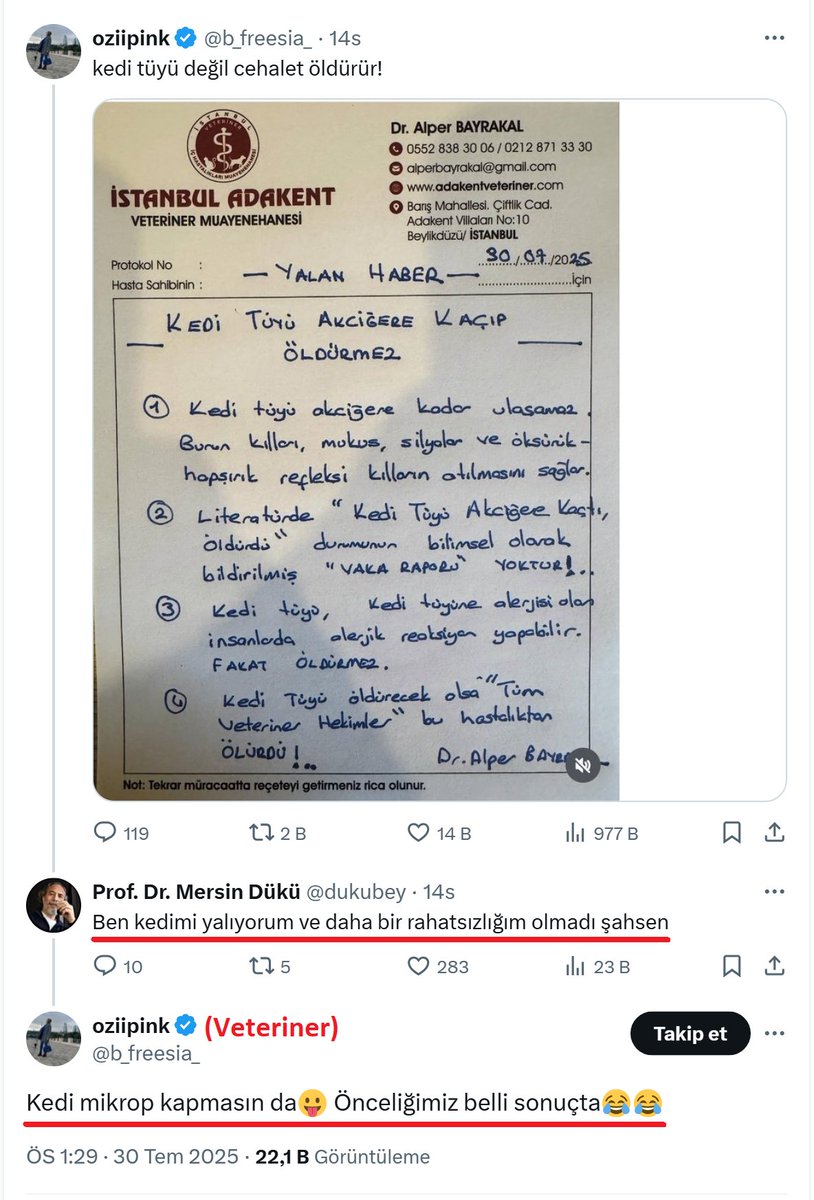 oziipink @b_freesia_ · 14s
kedi tüyü değil cehalet öldürür!
İSTANBUL
VETERİNER
İÇ HASTALIKLARI MUAYENEHANESİ
İSTANBUL ADAKENT
VETERİNER MUAYENEHANESİ
Dr. Alper BAYRAKAL
0552 838 30 06 / 0212 871 33 30
alperbayrakal@gmail.com
www.adakentveteriner.com
Barış Mahallesi. Çiftlik Cad.
Adakent Villaları No:10
Beylikdüzü/ İSTANBUL
30/07/2025
Protokol No :
Hasta Sahibinin :
— YALAN HABER —
İçin
KEDİ TÜYÜ AKCİĞERE KAÇIP
ÖLDÜRMEZ
① Kedi tüyü akciğere kadar ulaşamaz.
Burun kılları, mukus, silyalar ve öksürük-
hapşırık refleksi kılların atılmasını sağlar.
② Literatürde "Kedi Tüyü Akciğere Kaçtı,
öldürdü" durumunun bilimsel olarak
bildirilmiş "VAKA RAPORU" YOKTUR!..
③ Kedi tüyü, kedi tüyüne alerjisi olan
insanlarda alerjik reaksiyon yapabilir.
FAKAT ÖLDÜRMEZ.
④ Kedi Tüyü öldürecek olsa "Tüm
Veteriner Hekimler" bu hastalıktan
ÖLÜRDÜ!..
Dr. Alper
Not: Tekrar müracaatta reçeteyi getirmeniz rica olunur.
119 2 B 14 B 977 B
Prof. Dr. Mersin Dükü @dukubey · 14s
Ben kedimi yalıyorum ve daha bir rahatsızlığım olmadı şahsen
10 5 283 23 B
oziipink (Veteriner)
@b_freesia_
Takip et
Kedi mikrop kapmasın da😛 Önceliğimiz belli sonuçta😂😂
ÖS 1:29 · 30 Tem 2025 · 22,1 B Görüntüleme